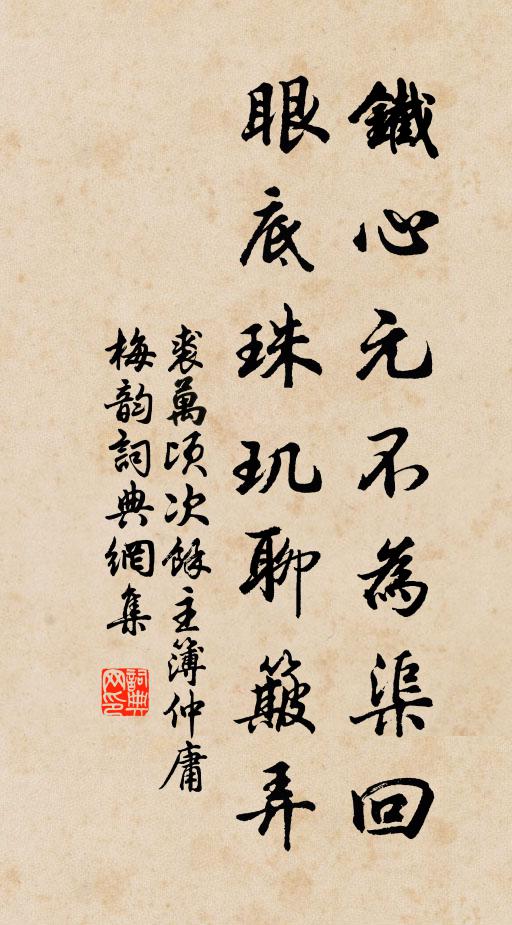 鐵心元不為渠回
眼底珠玑聊簸弄
裘萬頃次餘主簿仲庸
梅韵詞典網集
詞典网印